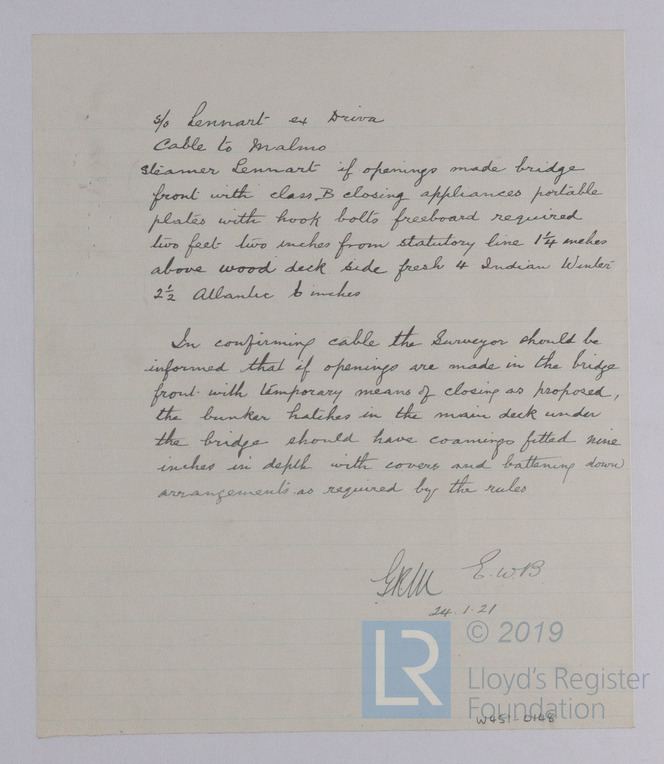 s/s Lennart ex Driva
Cable to Malmo
Steamer Lennart if openings made bridge
front with class B closing appliances portable
plates with hook bolts freeboard required
two feet two inches from statutory line 1¼ inches
above wood deck side fresh 4 Indian Winter
2½ Atlantic 6 inches
In confirming cable the Surveyor should be
informed that if openings are made in the bridge
front with temporary means of closing as proposed,
the bunker hatches in the main deck under
the bridge should have coamings fitted nine
inches in depth with covers and battening down
arrangements as required by the rules
E.W.B.
24.1.21
LR
© 2019
Lloyd's Register
Foundation
W451-0148